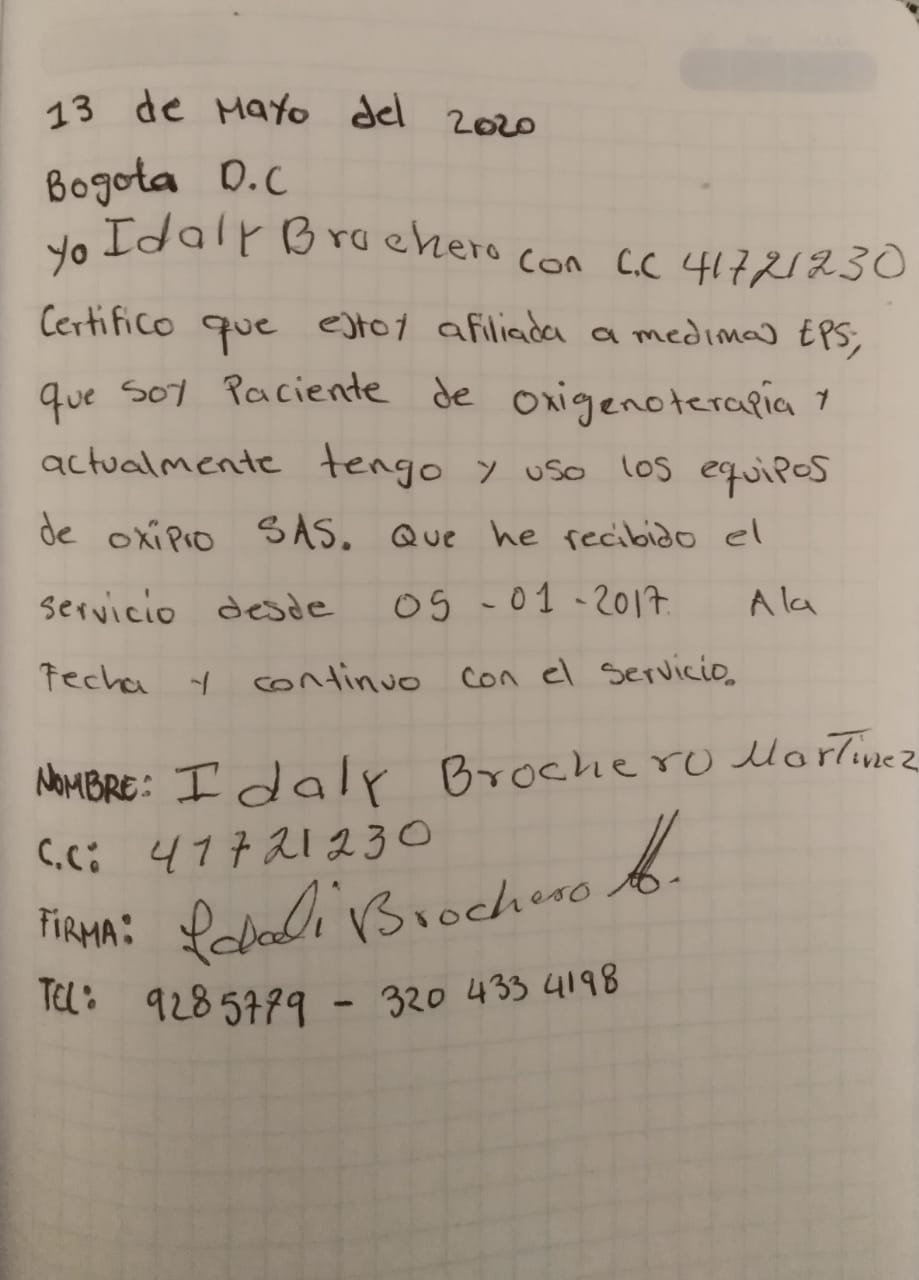 13 de Mayo del 2020
Bogota D.C
yo Idaly Brochero con C.C 41721230
Certifico que estoy afiliada a medimas EPS,
que soy Paciente de oxigenoterapia y
actualmente tengo y uso los equipos
de oxipro SAS. Que he recibido el
servicio desde 05-01-2017. A la
Fecha y continuo con el servicio.
NOMBRE: Idaly Brochero Martinez
C.C: 41721230
FIRMA: Idali Brochero M.
TEL: 9285779 - 320 433 4198